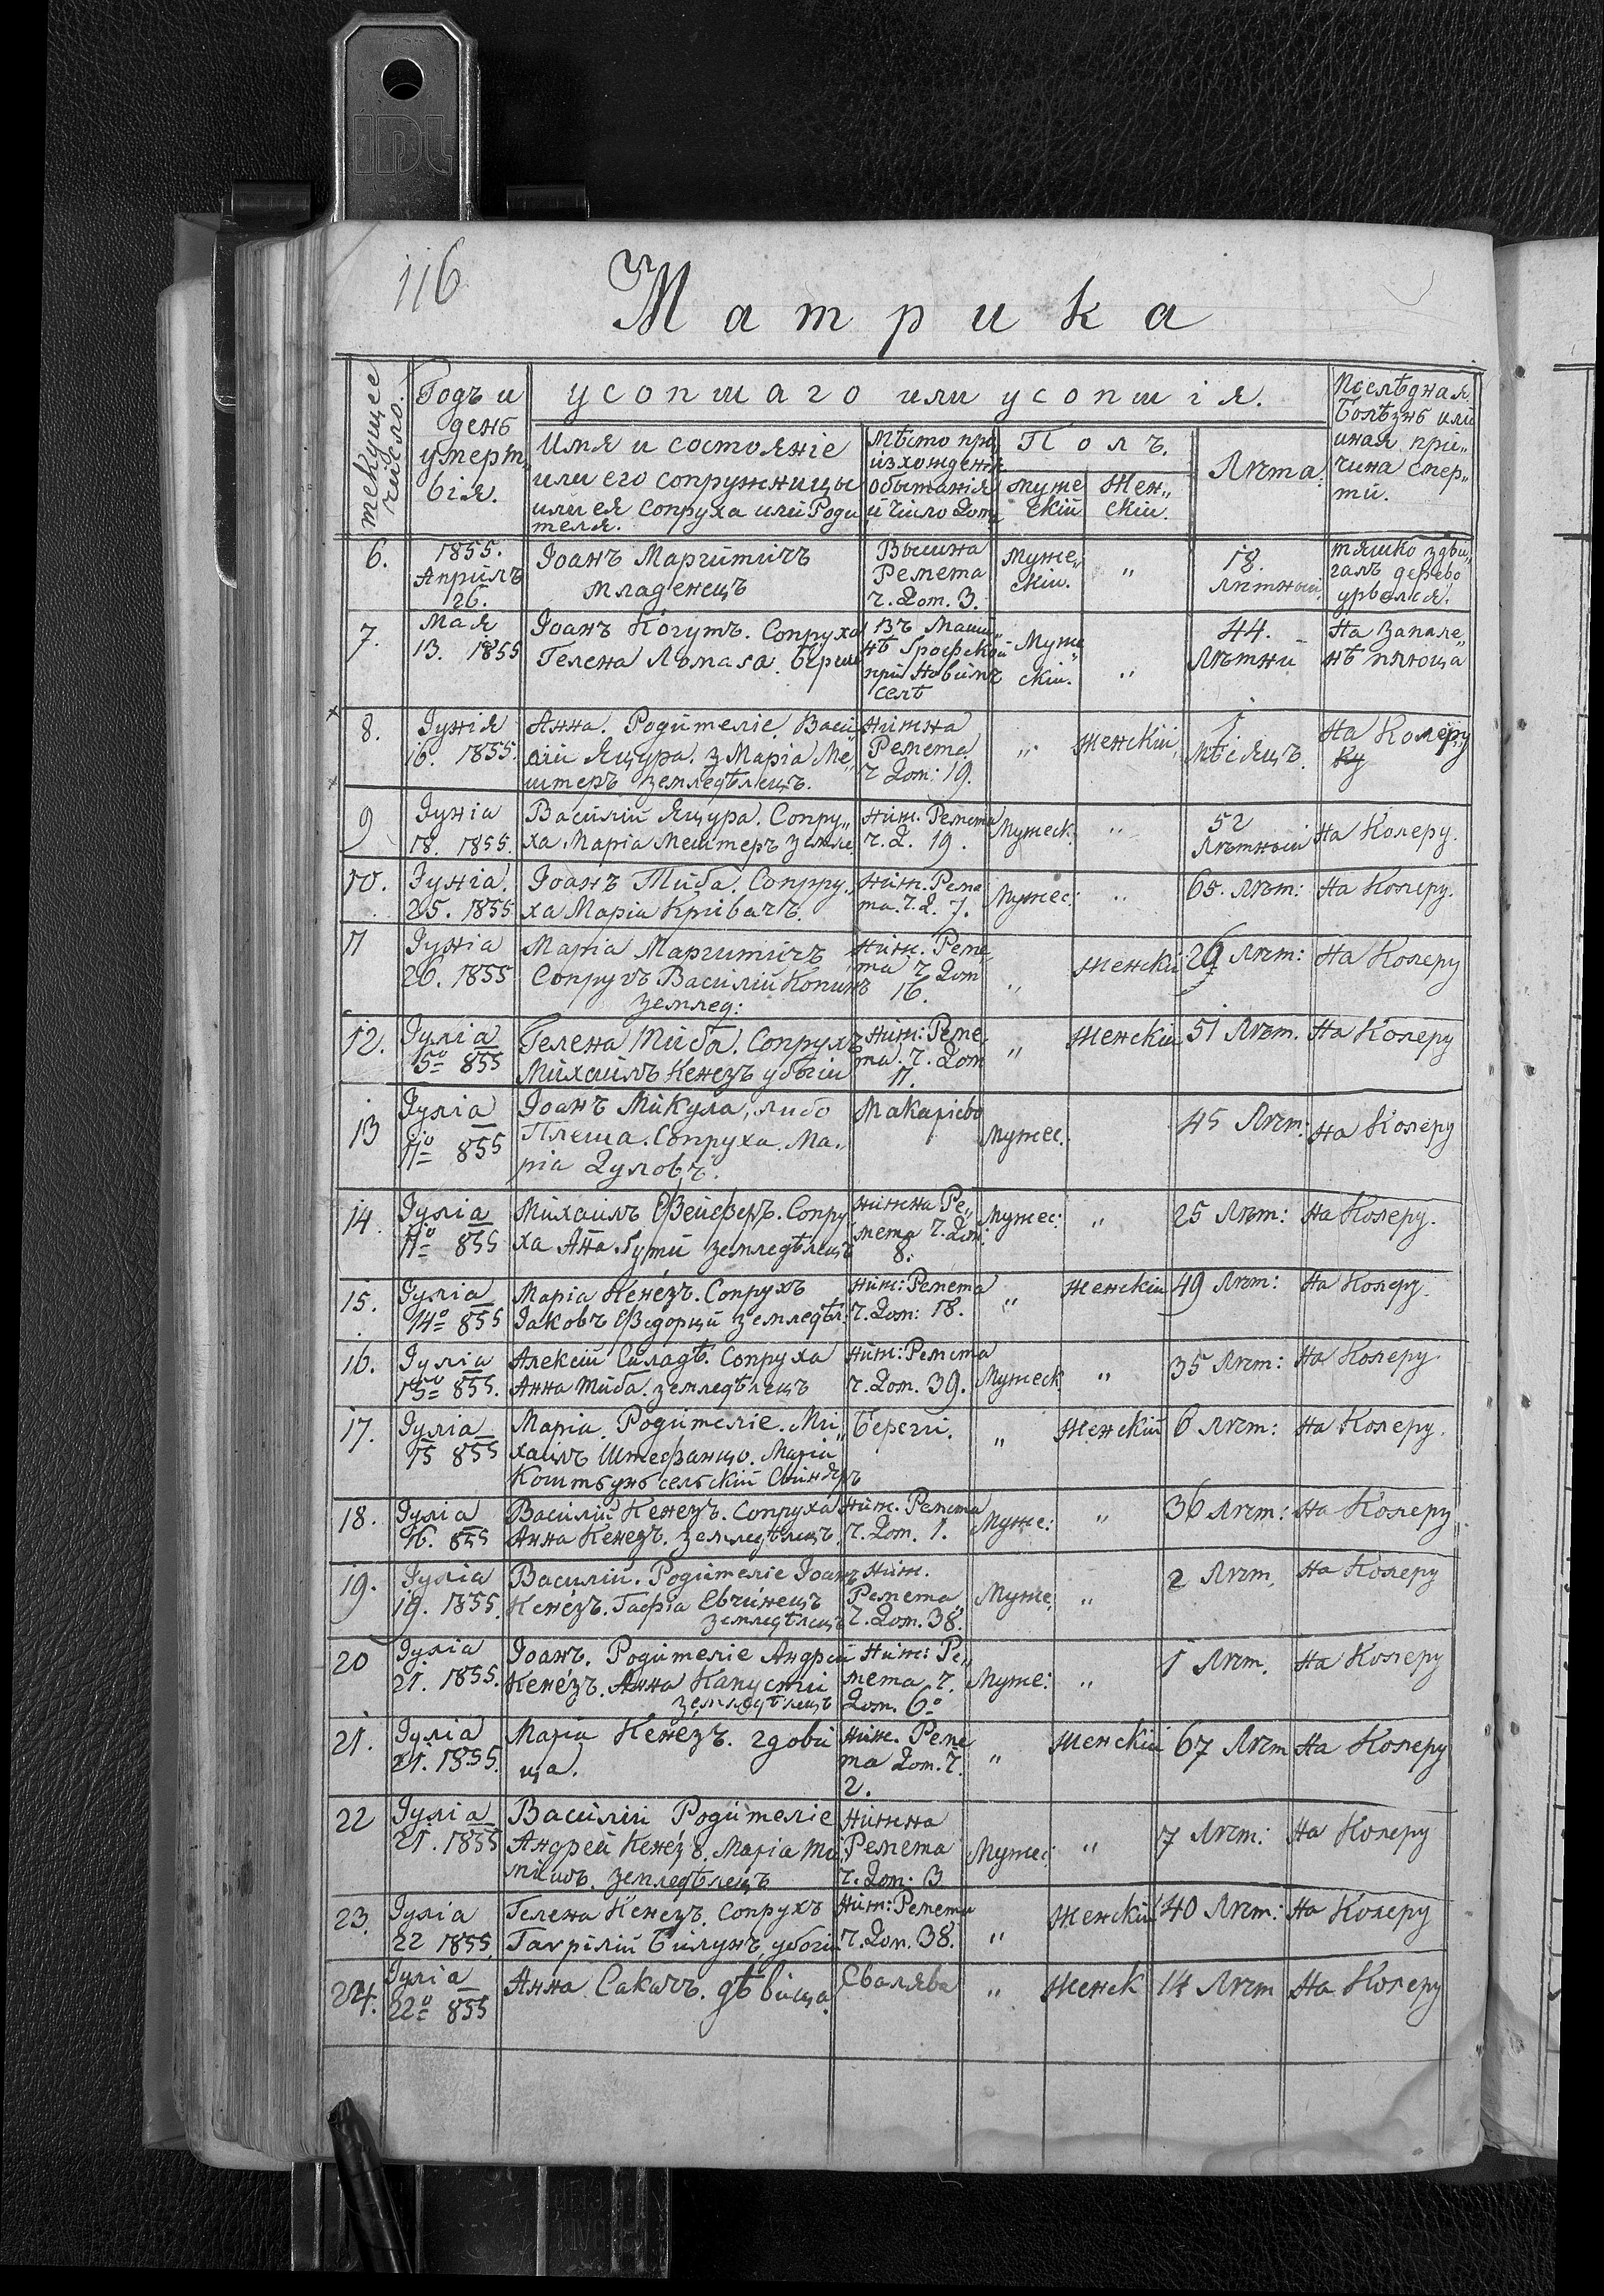 116
Матрика
текущее число.
Годъ и
день
умерт„
вія.
усопшаго или усопшія.
Имя и состояніе
или его сопружницы
или ея сопруха или Роди
теля.
Мѣсто про
изхожденія
обытанія
и число Дома
Полъ.
муже
скій
Жен„
скій.
Лѣта.
Послѣдная
Болѣзнь или
иная при„
чина смер„
ти.
6.
1855.
Априлъ
26.
Іоанъ Маргитичъ
младенецъ
Вышна
Ремета
ч. Дом. 3.
Муже„
скій.
„
18.
Лѣтный
тяшко здви„
галъ дерево
урвался.
7.
Мая
13. 1855
Іоанъ Когутъ. Сопруха
Гелена Ломага.
Въ Маши„
нѣ Грофской
при Новімъ
селѣ
Муже„
скій.
„
44.
Лѣтни
На Запале„
нѣ плюца
8.
Іунія
16. 1855.
Анна. Родителіе. Васи
лій Яцура. з Маріа Ме„
штеръ земледѣлецъ.
Нижна
Ремета
ч Дом: 19.
„
Женскій
1
мѣсяцъ.
На Колеру
ку
9
Іуніа
18. 1855.
Василій Яцура. Сопру„
ха Маріа Мештеръ земле.
Ниж. Ремета
ч. Д. 19.
Мужеск.
„
52
Лѣтный
На Колеру.
10.
Іуніа.
25. 1855
Іоанъ Тиба. Сопрру„
ха Маріа Кривачъ.
Ниж. Реме
та. ч. Д. 7.
Мужес:
„
65. Лѣт:
На Колеру.
11
Іуніа
26. 1855
Маріа Маргитичъ
Сопрухъ Василій Копинъ
землед:
Ниж. Реме
та ч Дом
16.
„
Женскій
26 Лѣт:
На Колеру
12.
Іуліа
5º 855
Гелена Тиба. Сопрухъ
Михаилъ Кенезъ убогій
Ниж: Реме
та. ч. Дом
11.
„
Женскій
51 Лѣт.
На Колеру
13
Іуліа
11º 855
Іоанъ Микула, либо
Плеша. Сопруха. Ма„
ріа Дуловъ.
Макарiево
Мужес.
45 Лѣт:
На Колеру
14.
Іуліа
11º 855
Михаилъ Фейсѣеръ. Сопру
ха Анна Гути земледѣлецъ
Нижна Ре„
мета ч. Дом:
8.
Мужес:
„
25 Лѣт:
На Колеру.
15.
Іуліа
14º 855
Маріа Кенезъ. Сопрухъ
Іаковъ Федорци земледѣл:
Ниж: Ремета
ч. Дом: 18.
„
Женскій
49 Лѣт:
На Колеру.
16.
Іуліа
15º 855.
Алексій Силадѣ. Сопруха
Анна Тиба. земледѣлецъ
Ниж: Ремета
ч. Дом. 39.
Мужеск
„
35 Лѣт:
На Колеру.
17.
Іуліа
15 855
Маріа. Родителіе. Ми„
хаилъ Штефанцо. Марій
Коштьунъ сельскій Свиняръ
Береги.
„
Женскій
6 Лѣт:
На Колеру.
18.
Іуліа
16. 855
Василій Кенезъ. Сопруха
Анна Кенезъ. земледѣлецъ
Ниж. Ремета
ч. Дом. 1.
Муже:
„
36 Лѣт:
На Колеру.
19.
Іуліа
19. 1855.
Василій. Родителіе Іоанъ
Кенезъ. Гафіа Евчинецъ
земледѣлецъ
Ниж.
Ремета„
ч. Дом. 38.
Муже:
„
2 Лѣт.
На Колеру
20
Іуліа
21. 1855.
Іоанъ. Родителіе Андрей
Кенезъ. Анна Капустій
земледѣлецъ
Ниж: Ре„
мета ч.
Дом. 6º
Муже:
„
1 Лѣт.
На Колеру
21.
Іуліа
21. 1855.
Маріа Кенезъ. гдови
ца.
Ниж. Реме
та Дом. ч.
2.
„
Женскій
67 Лѣт
На Колеру
22
Іуліа
21. 1855
Василій Родителіе
Андрей Кенезъ. Маріа
земледѣлецъ
Нижна
Ремета
ч. Дом: 3
Мужес:
„
7 Лѣт:
На Колеру
23.
Іуліа
22 1855.
Гелена Кенезъ. Сопрухъ
Гаврілій Билунъ, убогій
Ниж: Ремета
ч. Дом. 38.
„
Женскій
40 Лѣт:
На Колеру
24.
Іуліа
22º 855
Анна Сакачъ. дѣвица.
Свалява
„
Женск
14 Лѣт
На Колеру